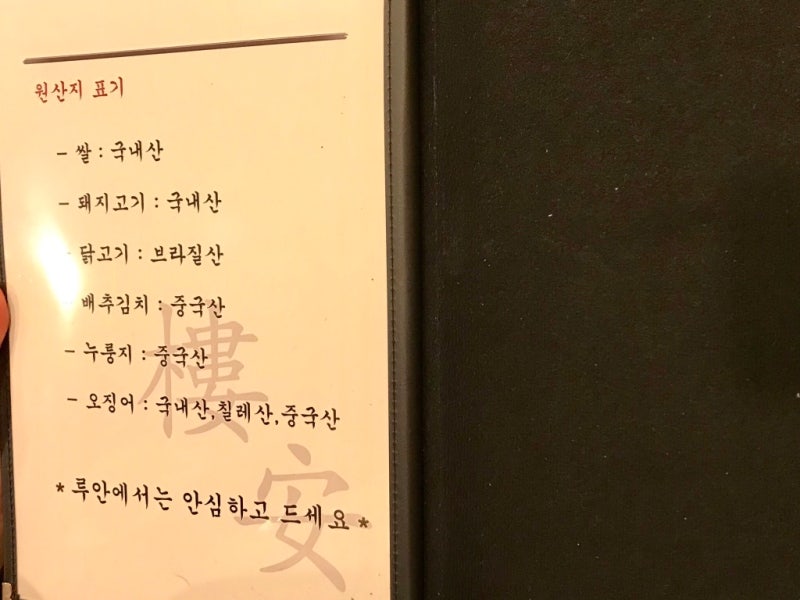 원산지 표기
- 쌀 : 국내산
- 돼지고기 : 국내산
- 닭고기 : 브라질산
- 배추김치 : 중국산
- 누룽지 : 중국산
- 오징어 : 국내산,칠레산,중국산
* 루안에서는 안심하고 드세요 *
樓
安